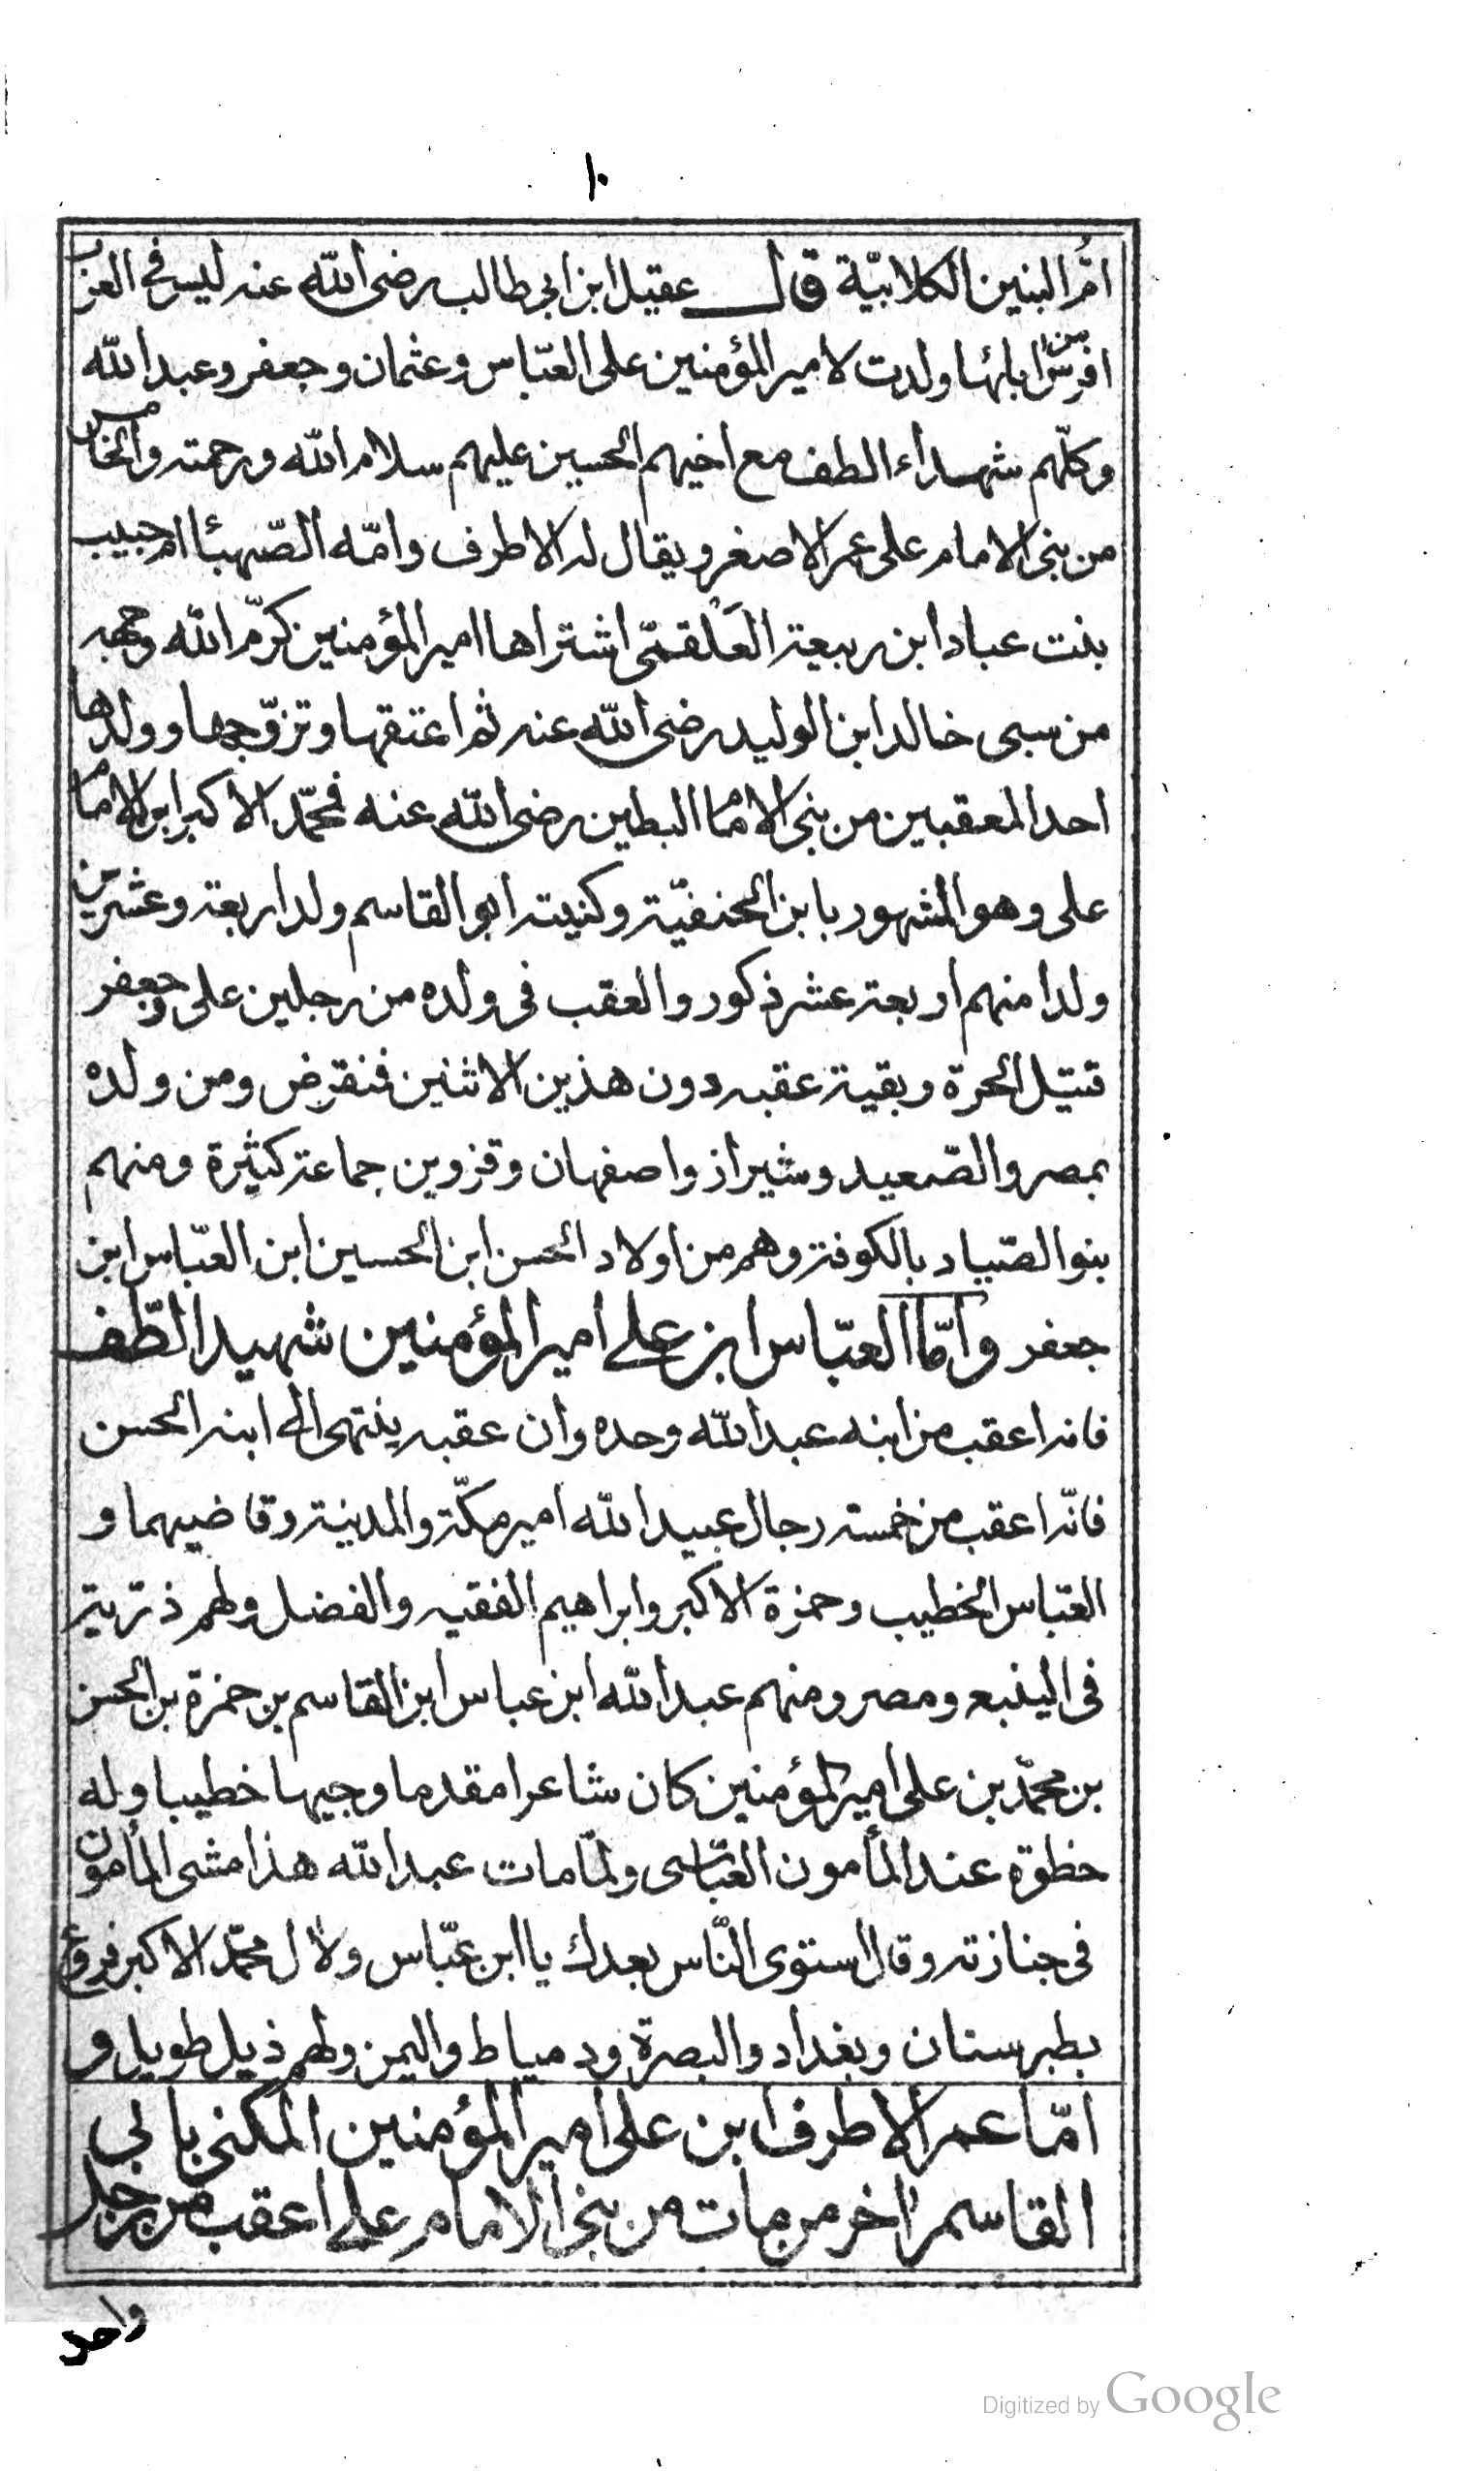 ١٠
امّ البنين الكلابيّة قال عقيل ابن ابى طالب رضى الله عنه ليس فى العرب
افرس من ابائها ولدت لامير المؤمنين على العبّاس وعثمان وجعفر وعبد الله
وكلّهم شهداء الطف مع اخيهم الحسين عليهم سلام الله ورحمته والخامس
من بنى الامام على عمر الاصغر ويقال له الاطرف وامّه الصّهبئا ام حبيب
بنت عباد ابن ربيعة العَلقمّى اشتراها امير المؤمنين كرّم الله وجهه
من سبى خالد ابن الوليد رضى الله عنه ثم اعتقها وتزوّجها وولدها
احد المعقبين من بنى الامام البطين رضى الله عنه فمحمّد الاكبر ابن الامام
على وهو المشهور بابن الحنفيّة وكنيته ابو القاسم ولد اربعة وعشرين
ولدا منهم اربعة عشر ذكور والعقب فى ولده من رجلين على وجعفر
قتيل الحرة وبقية عقبه دون هذين الاثنين فنقرض ومن ولده
بمصر والصّعيد وشيراز واصفهان وقزوين جماعة كثيرة ومنهم
بنو الصّياد بالكوفة وهم من اولاد الحسن ابن الحسين ابن العبّاس ابن
جعفر وامّا العبّاس ابن على امير المؤمنين شهيد الطّف
فانه اعقب من ابنه عبد الله وحده وان عقبه ينتهى الى ابنه الحسن
فانّه اعقب من خمسة رجال عبيد الله امير مكّة والمدينة وقاضيهما و
العبّاس الخطيب وحمزة الاكبر وابراهيم الفقيه والفضل ولهم ذرّية
فى الينبع ومصر ومنهم عبد الله ابن عباس ابن القاسم بن حمزة بن الحسن
بن محمّد بن على امير المؤمنين كان شاعرا مقدما وجيها خطيبا وله
خطوة عند المأمون العبّاسى ولمّا مات عبد الله هذا مشى المأمون
فى جنازته وقال استوى النّاس بعدك يا ابن عبّاس ولال محمّد الاكبر فروع
بطبرستان وبغداد والبصرة ودمياط واليمن ولهم ذيل طويل و
امّا عمر الاطرف ابن على امير المؤمنين المكنى بابى
القاسم اخر من مات من بنى الامام على اعقب من رجل
واحد
Digitized by Google